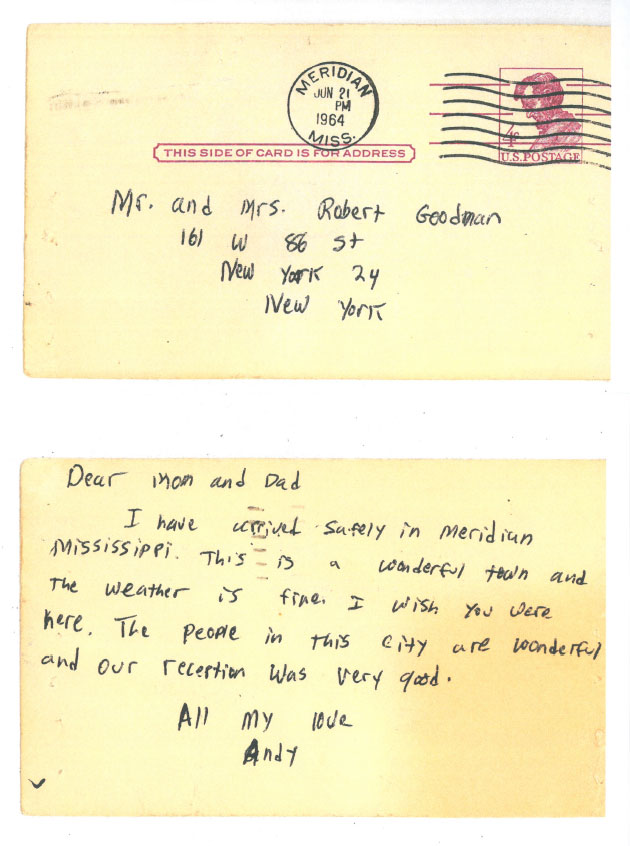 MERIDIAN
JUN 21
PM
1964
MISS.
4¢
U.S. POSTAGE
THIS SIDE OF CARD IS FOR ADDRESS
Mr. and Mrs. Robert Goodman
161 W 86 St
New York 24
New York
Dear Mom and Dad
I have arrived safely in Meridian
Mississippi. This is a wonderful town and
the weather is fine. I wish you were
here. The people in this city are wonderful
and our reception was very good.
All my love
Andy